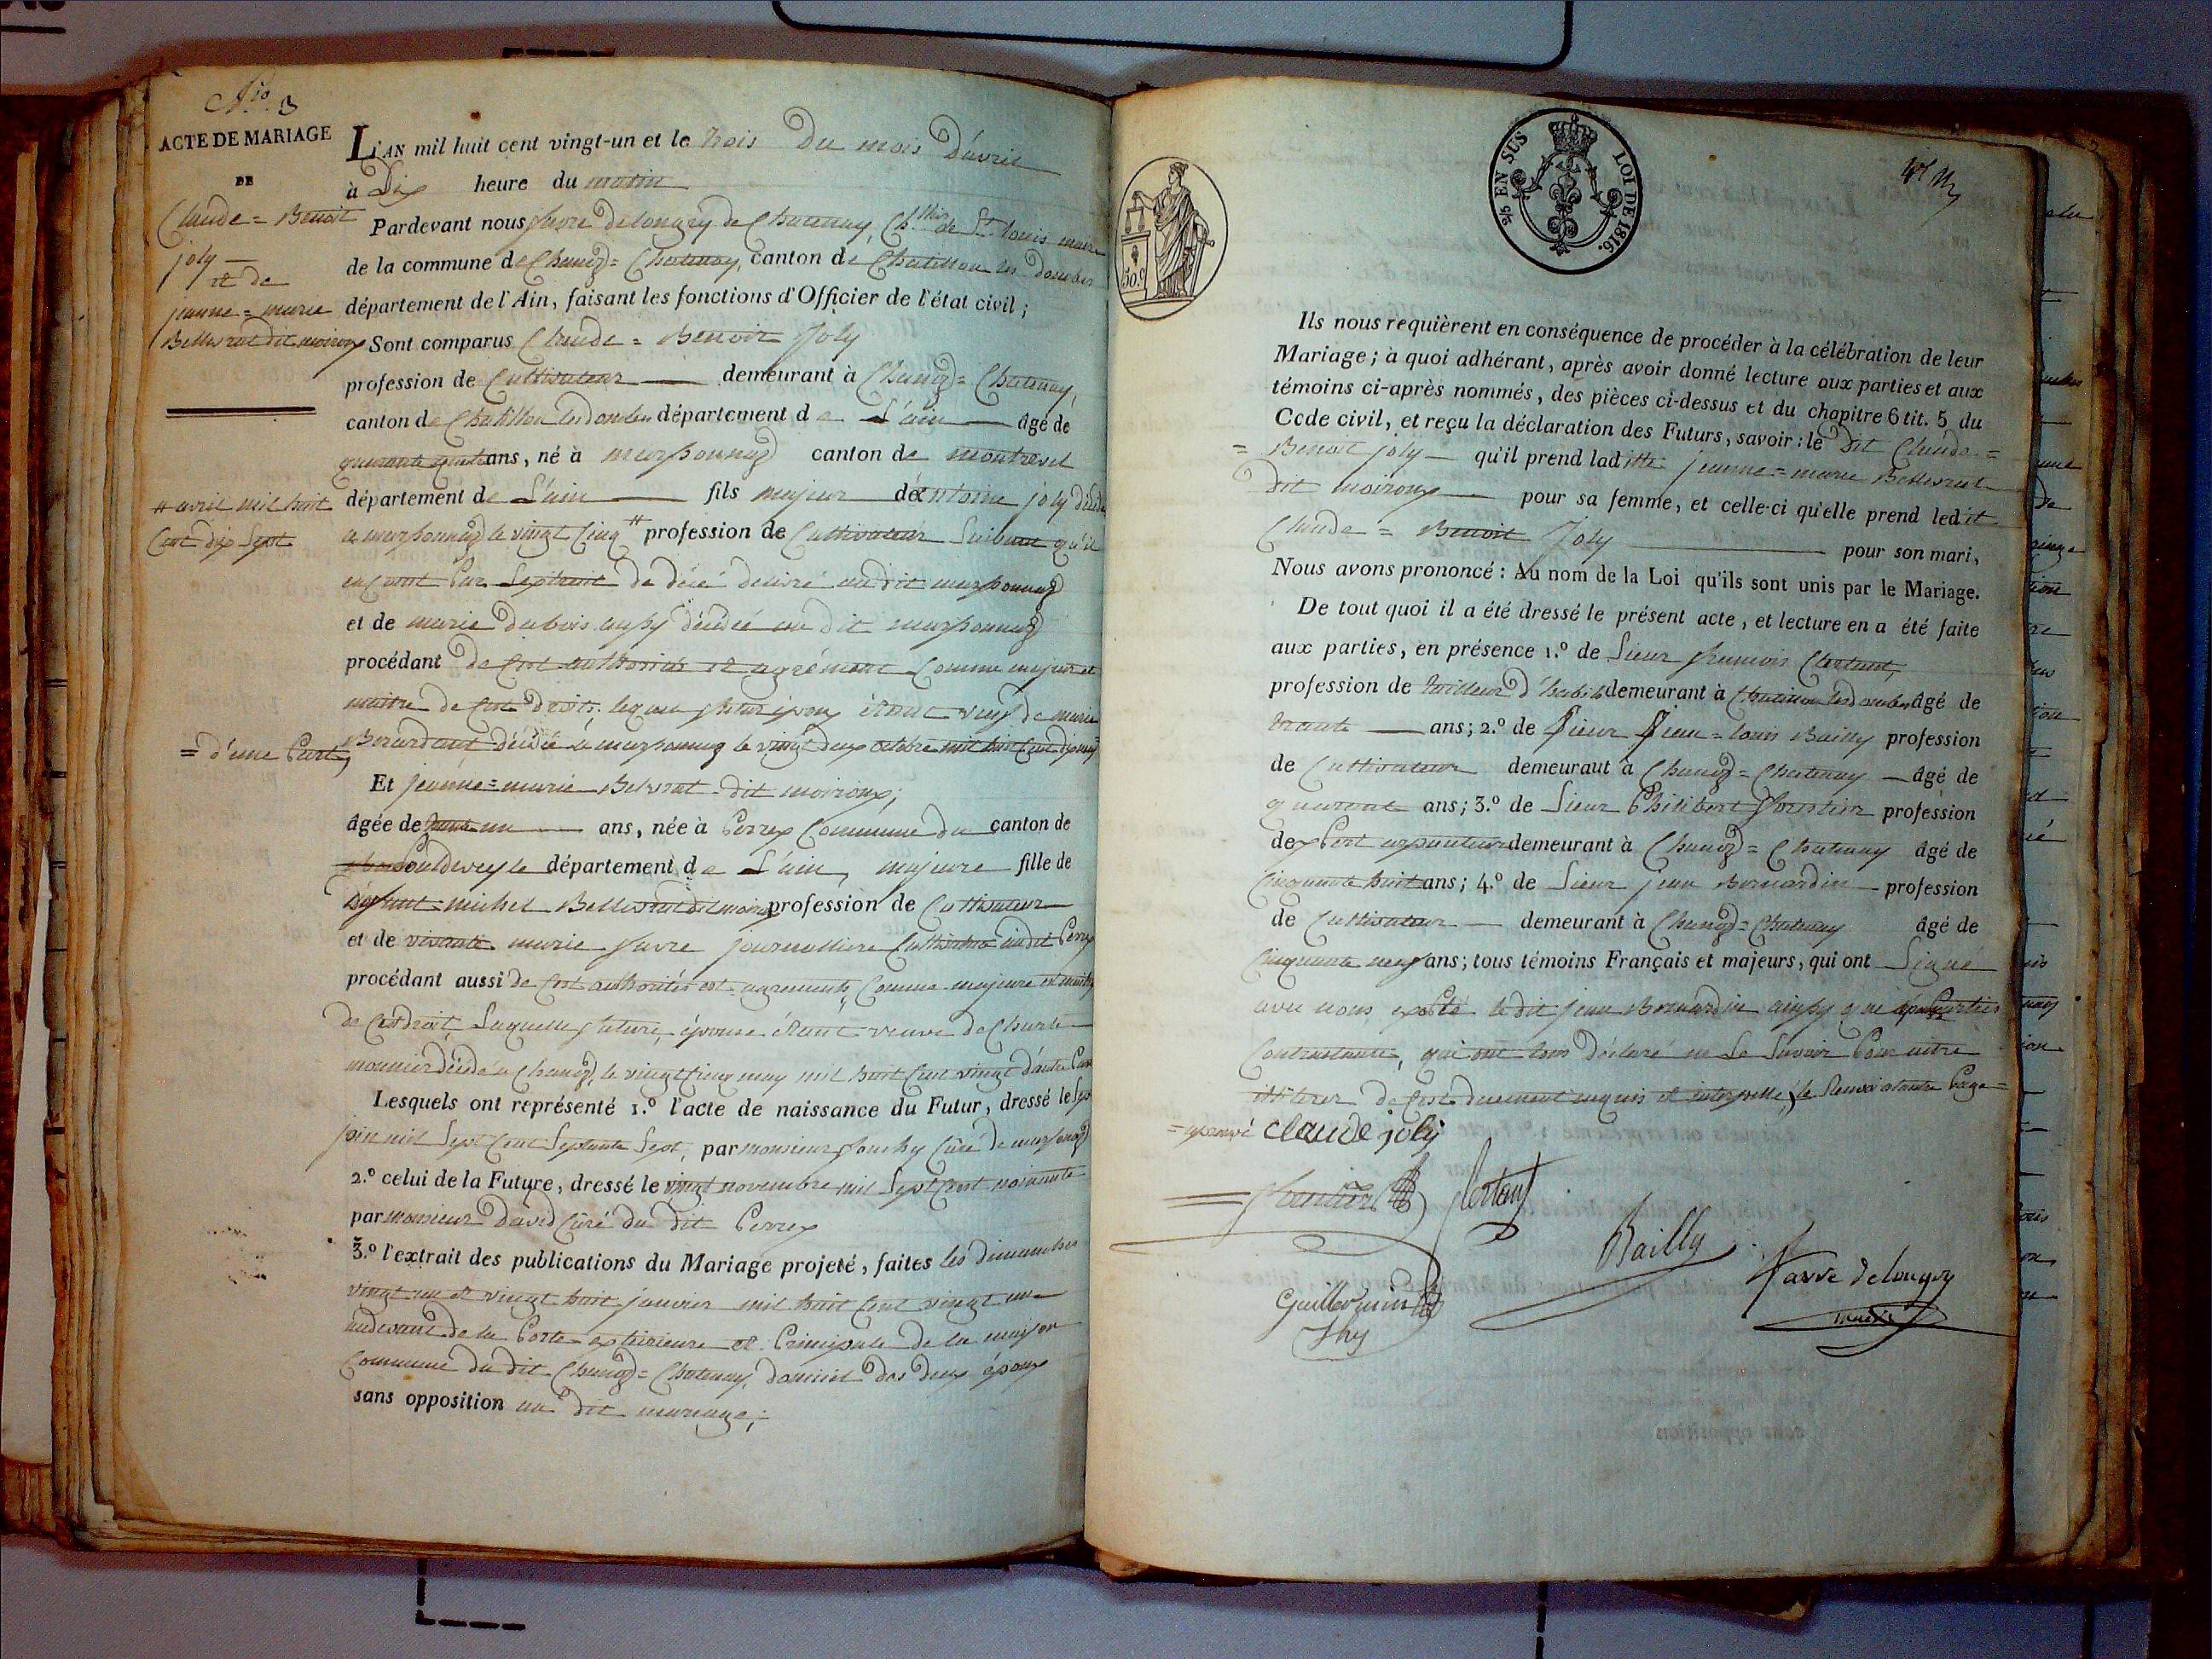 N.° 3
ACTE DE MARIAGE
DE
Claude = Benoit
joly
et de
jeanne = marie
Bellevrat dit moiroux
# avril mil huit
Cent dix Sept
= d'une Part,
L'AN mil huit cent vingt-un et le trois Du mois D'avril
à Dix heure du matin
Pardevant nous favre Delongry de Chatenay, Ch. de St. Louis maire
de la commune de Chanoz = Chatenay, canton de Chatillon les dombes
département de l'Ain, faisant les fonctions d'Officier de l'état civil;
Sont comparus Claude = Benoit Joly
profession de Cultivateur demeurant à Chanoz = Chatenay,
canton de Chatillon les Dombes département de L'ain âgé de
quarante quatre ans, né à marsonnaz canton de montrevel
département de L'ain fils majeur d'antoine joly décédé
a marsonnaz le vingt Cinq # profession de Cultivateur Suivant qu'il
Par Lextrait de décé delivré au dit marsonnaz
et de marie Dubois aussy décédée au dit marsonnaz
procédant de Ces authorités et agrément Comme majeur et
maitre de Ces Droits, lequel futur époux étant veuf de marie
Berardant, décédée à marsonnaz le vingt deux octobre mil huit Cent dix neuf
Et jeanne = marie Belvrat dit moiroux;
âgée de trente un ans, née à Perrex Commune du canton de
Pontdeveyle département de L'ain, majeure fille de
défunt michel Bellevrat dit moiroux profession de Cultivateur
et de vivante marie favre journalliere Cultivatrice audit Perrex
procédant aussi de Ces authorités et agrements, Comme majeure et maitresse
de Ces droit, Laquelle future, épouse étant veuve de Charle
monnier décédé a Chanoz, le vingt Cinq may mil huit Cent vingt d'autre Part
Lesquels ont représenté 1.° l'acte de naissance du Futur, dressé le Sept
juin mil Sept Cent Septante Sept, par monsieur Curé de marsonaz
2.° celui de la Future, dressé le vingt novembre mil Sept Cent nonante
par monsieur David Curé du dit Perrex
3.° l'extrait des publications du Mariage projeté, faites les dimanches
vingt un et vingt huit janvier mil huit Cent vingt un
audevant de la Porte extérieure et Principale de la maison
Commune du dit Chanoz = Chatenay, domicil des deux époux
sans opposition au dit mariage;
5/6 EN SUS
LOI DE 1816.
50.c
Ils nous requièrent en conséquence de procéder à la célébration de leur
Mariage; à quoi adhérant, après avoir donné lecture aux parties et aux
témoins ci-après nommés, des pièces ci-dessus et du chapitre 6 tit. 5 du
Code civil, et reçu la déclaration des Futurs, savoir: le Dit Claude =
= Benoit joly qu'il prend laditte jeanne = marie Bellevrat
dit moiroux pour sa femme, et celle-ci qu'elle prend ledit
Claude = Benoit Joly pour son mari,
Nous avons prononcé: Au nom de la Loi qu'ils sont unis par le Mariage.
De tout quoi il a été dressé le présent acte, et lecture en a été faite
aux parties, en présence 1.° de Sieur francois Clertant,
profession de tailleur d'habits demeurant à Chatillon les dombes âgé de
trante ans; 2.° de Sieur Jean = Louis Bailly profession
de Cultivateur demeurant à Chanoz = Chatenay âgé de
quarante ans; 3.° de Sieur Philibert profession
dexpert arpenteur demeurant à Chanoz = Chatenay âgé de
Cinquante huit ans; 4.° de Sieur jean Bernardin profession
de Cultivateur demeurant à Chanoz = Chatenay âgé de
Cinquante neuf ans; tous témoins Français et majeurs, qui ont Signé
avec nous, excepté le dit jean Bernardin ainsy que Parties
Contractante, qui ont tous Déclaré ne Le Savoir Pour autre
de Ce duement requis et interpellé, le Renvoi alautre Page =
= aprouvé claude joly
Bailly
favre delongry
maire
Guillermin